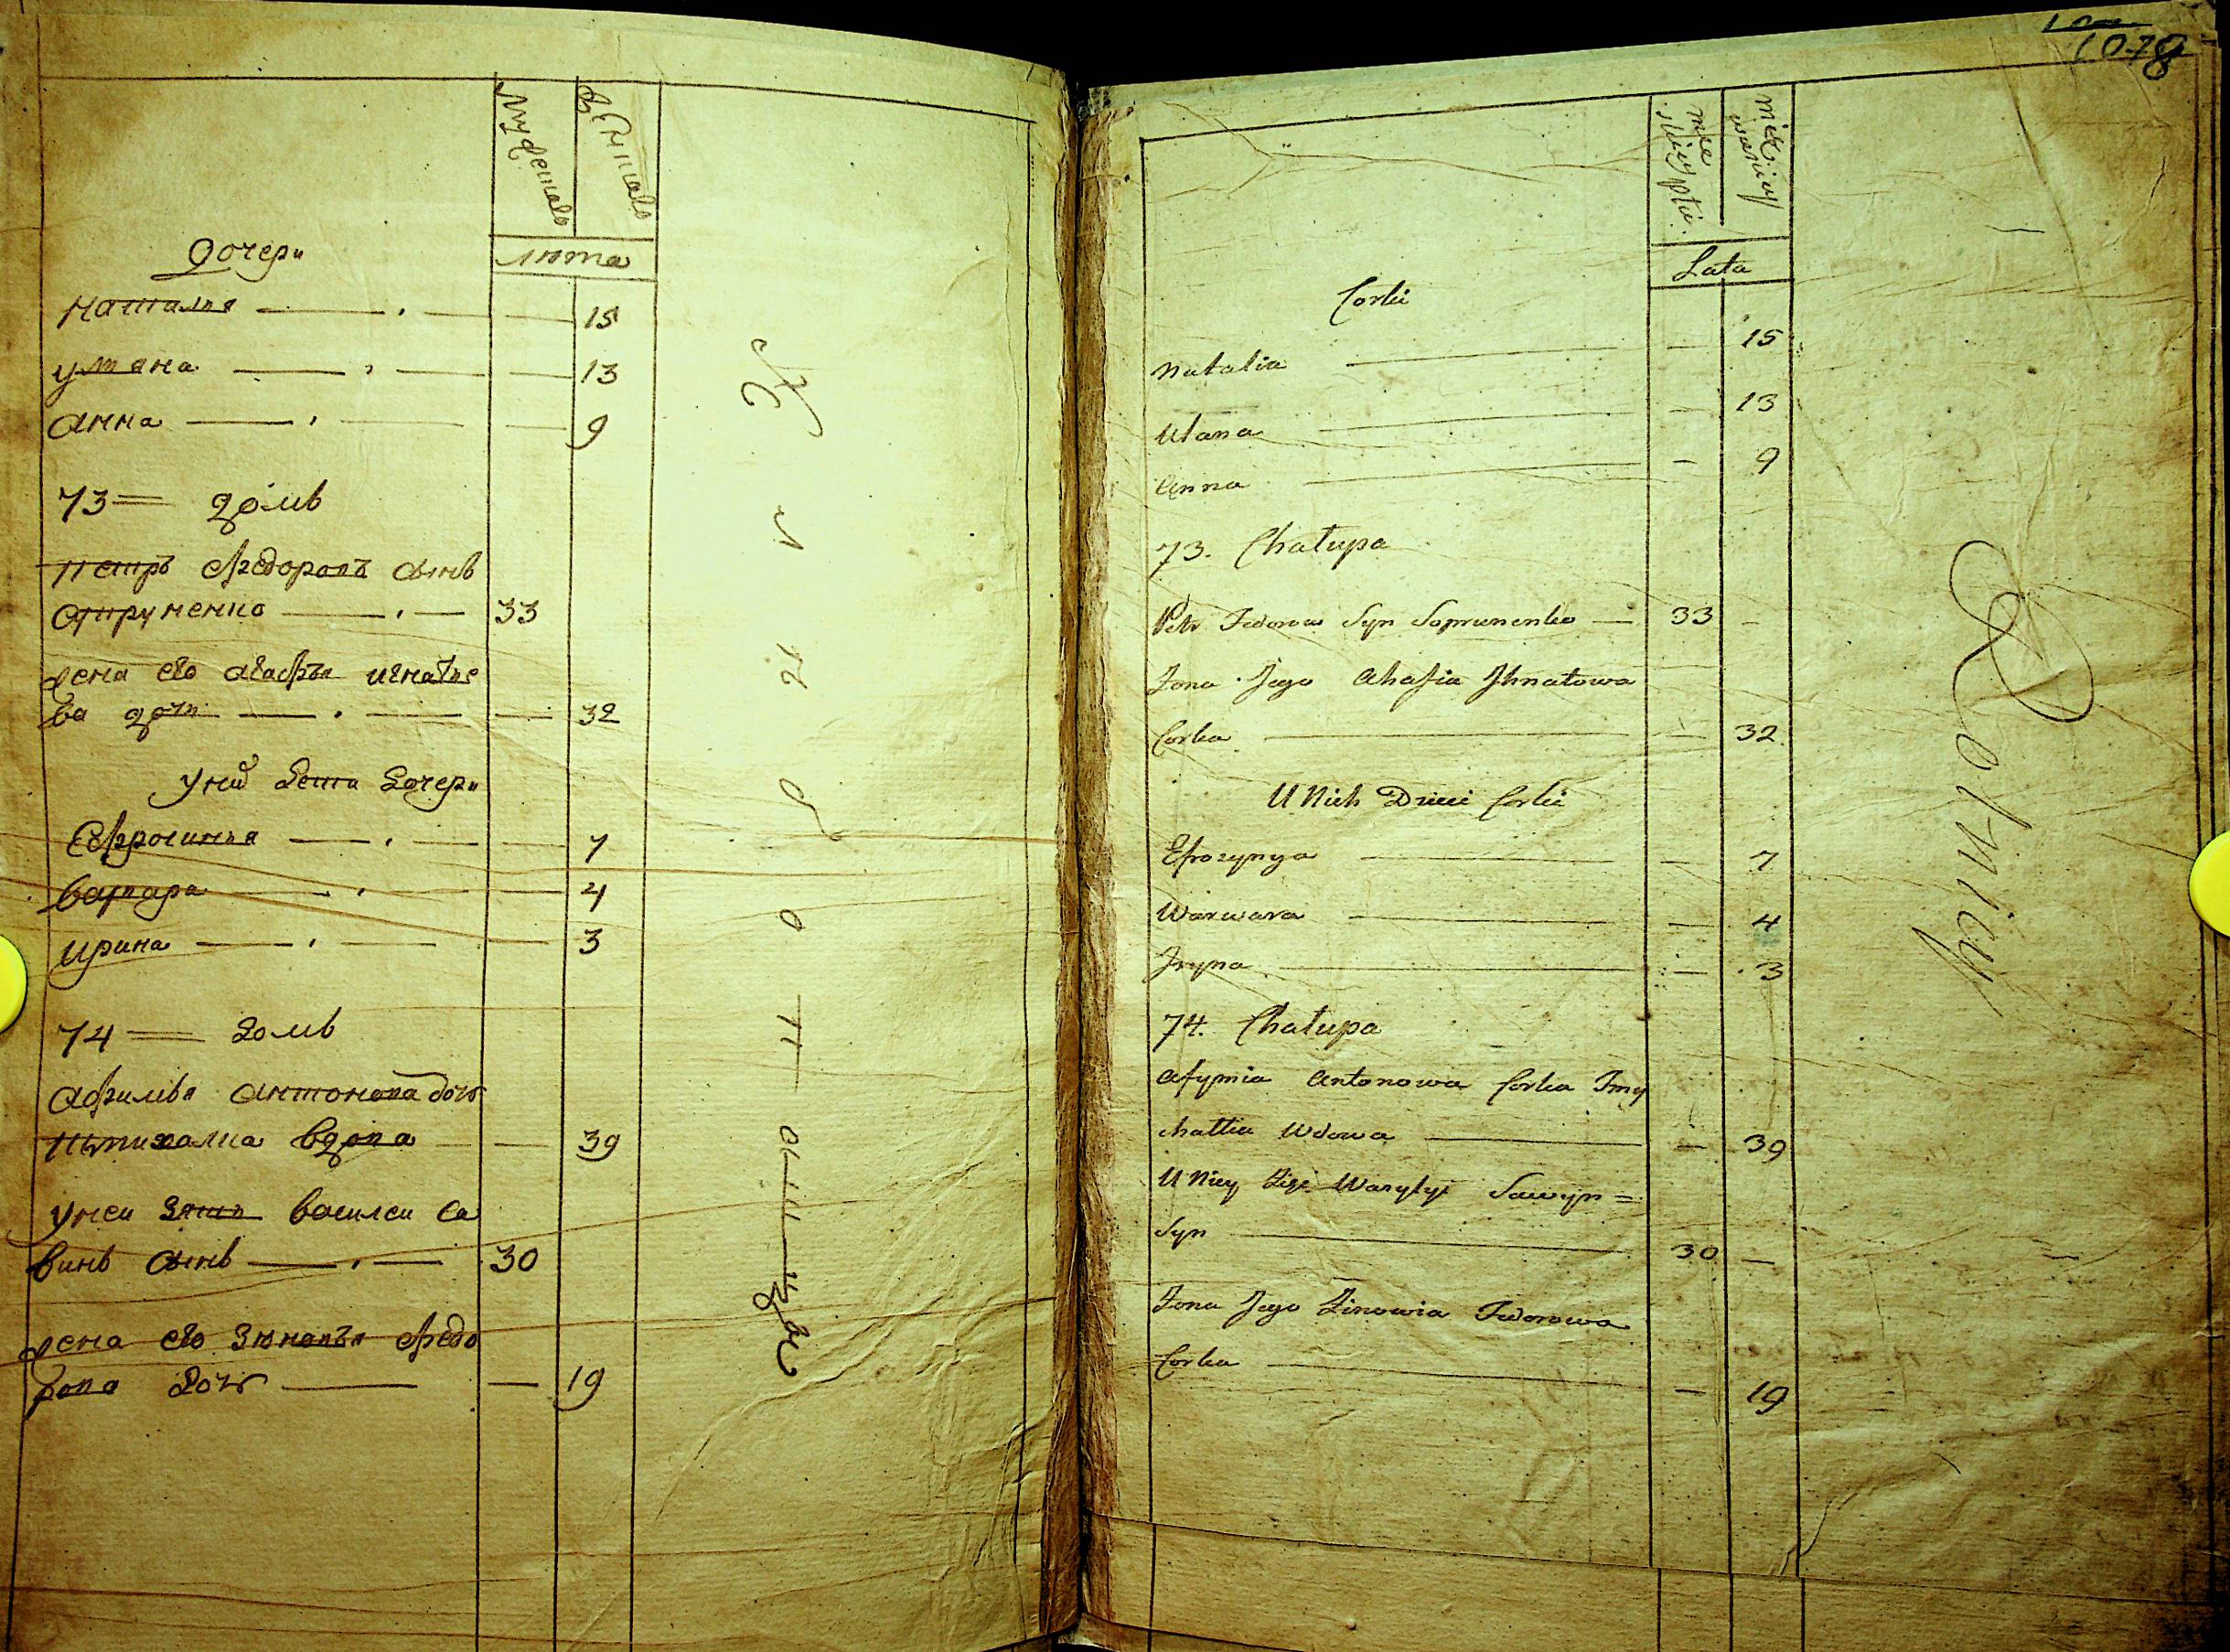 Мужескъ
Женскъ
лѣта
Дочери
Наталья 15
Ульяна 13
Анна 9
73 домъ
Петръ Федоровъ сынъ
Супруненко 33
жена его Агафья Игнатье
ва дочь 32
У них дети дочери
Ефросинья 7
Варвара 4
Ирина 3
74 домъ
Афимья Антонова дочь
вдова 39
У неи зять Василеи Са
винъ сынъ 30
жена его Зиновья Федо
рова дочь 19
1078
męskiey płci
Lata
Corki
Natalia — 15
Ulana — 13
Anna — 9
73. Chałupa
Petr Fedorow Syn Soprunenko — 33 —
Żona Jego Ahafia Ihnatowa
Corka — 32
U Nich Dzieci Corki
Efrozynya — 7
Warwara — 4
Iryna — 3
74. Chałupa
Afymia Antonowa Corka Tmy
chałka Wdowa — 39
U Niey Zięć Wasylyi Sawyn =
Syn 30 —
Żona Jego Zinowia Fedorowa
Corka — 19
Rolnicy